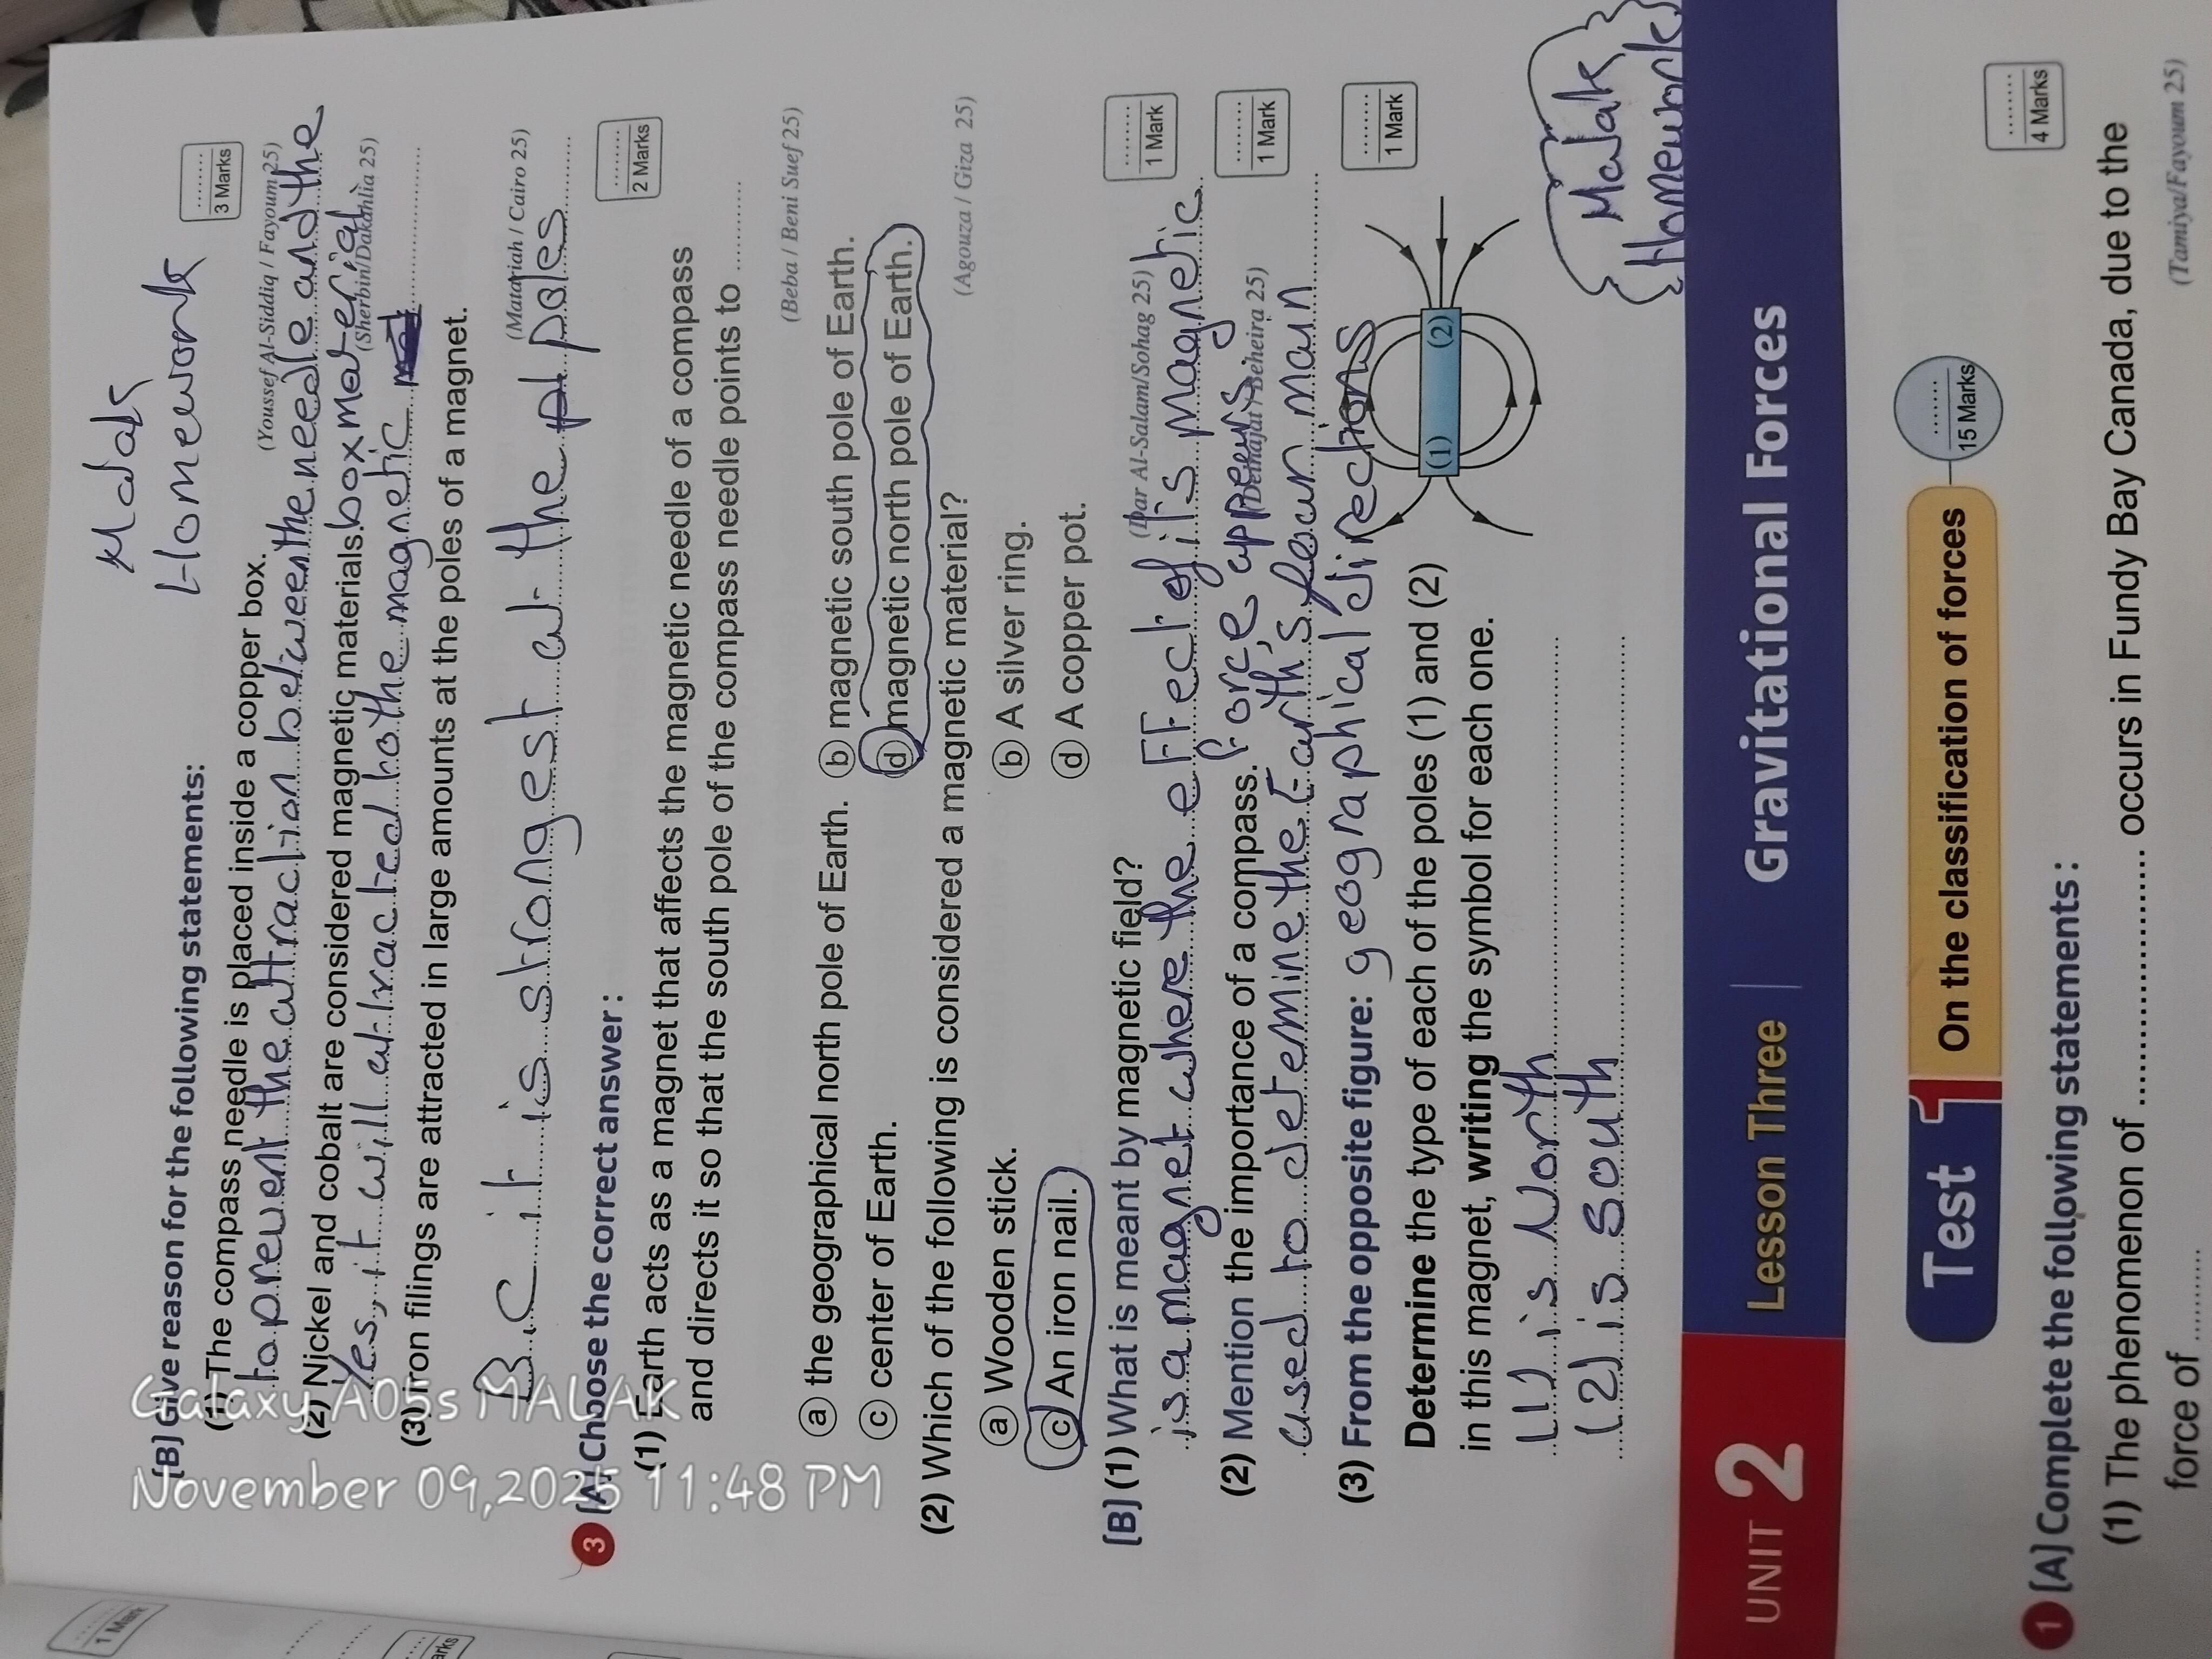 Malak
Homework
[B] Give reason for the following statements:
3 Marks
(1) The compass needle is placed inside a copper box.
(Youssef Al-Siddiq / Fayoum 25)
to prevent the attraction between the needle and the
(2) Nickel and cobalt are considered magnetic materials.
box material
(Sherbin/Dakahlia 25)
Yes, it will attracted to the magnetic
(3) iron filings are attracted in large amounts at the poles of a magnet.
(Matariah / Cairo 25)
B.C it is strongest at the poles
3 [A] Choose the correct answer :
2 Marks
(1) Earth acts as a magnet that affects the magnetic needle of a compass
and directs it so that the south pole of the compass needle points to ..........
(Beba / Beni Suef 25)
a the geographical north pole of Earth. b magnetic south pole of Earth.
c center of Earth. d magnetic north pole of Earth.
(2) Which of the following is considered a magnetic material?
(Agouza / Giza 25)
a Wooden stick. b A silver ring.
c An iron nail. d A copper pot.
[B] (1) What is meant by magnetic field?
(Dar Al-Salam/Sohag 25)
1 Mark
is a magnet where the effect of its magnetic
force appears
(2) Mention the importance of a compass.
1 Mark
used to determine the Earth's four man
geographical directions
(3) From the opposite figure:
1 Mark
Determine the type of each of the poles (1) and (2)
in this magnet, writing the symbol for each one.
(1) (2)
(1) is North
(2) is South
Malak
Homework
UNIT 2 Lesson Three Gravitational Forces
Test 1 On the classification of forces
15 Marks
1 [A] Complete the following statements :
4 Marks
(1) The phenomenon of .................... occurs in Fundy Bay Canada, due to the
force of ..........
(Tamiya/Fayoum 25)
1 Mark
Galaxy A05s MALAK
November 09,2025 11:48 PM